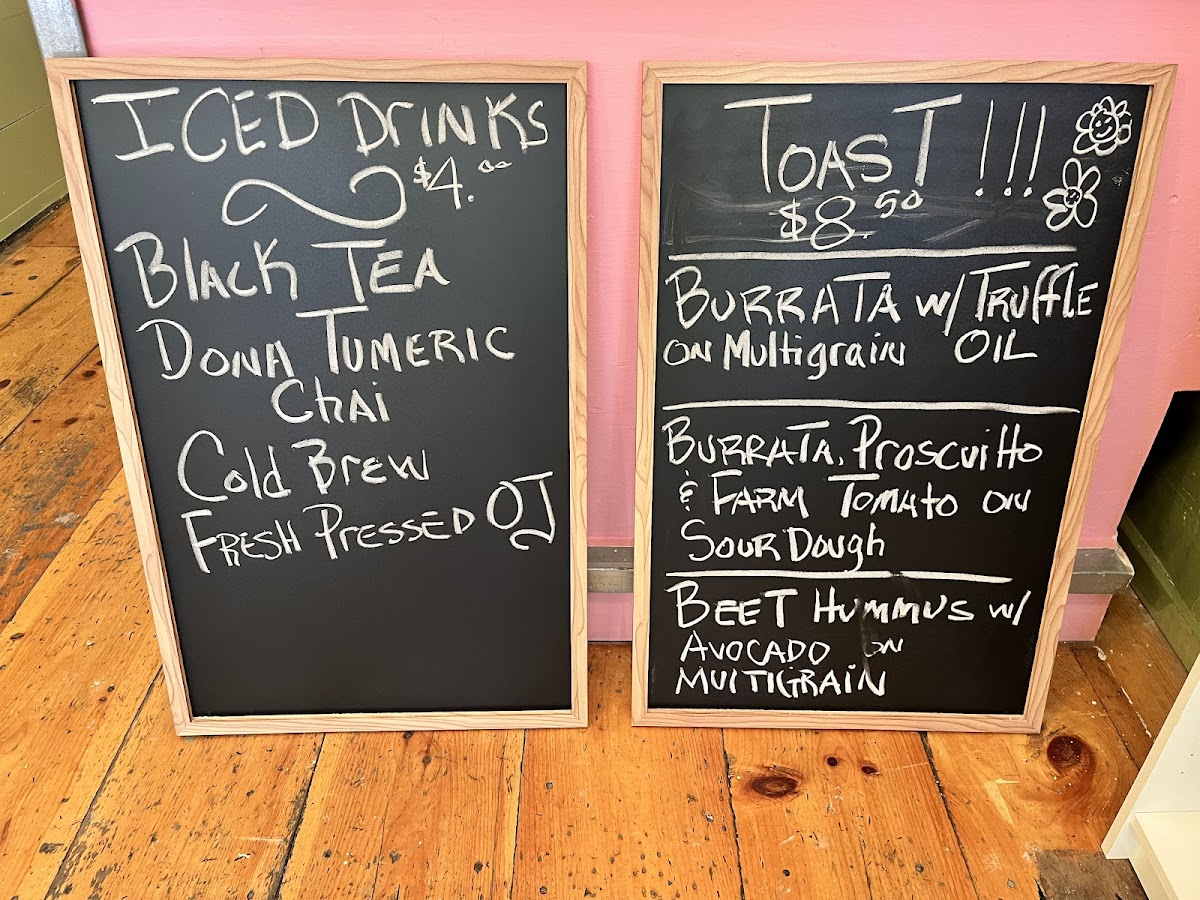 ICED DRINKS
$4.00
BLACK TEA
DONA TUMERIC
CHAI
Cold Brew
FRESH PRESSED OJ
TOAST !!!
$8.50
BURRATA w/ TRUffLE
ON Multigrain OIL
BURRATA, Proscuitto
& FARM TOMATO ON
SOUR DOUGH
BEET HUMMUS w/
AVOCADO ON
MULTIGRAIN